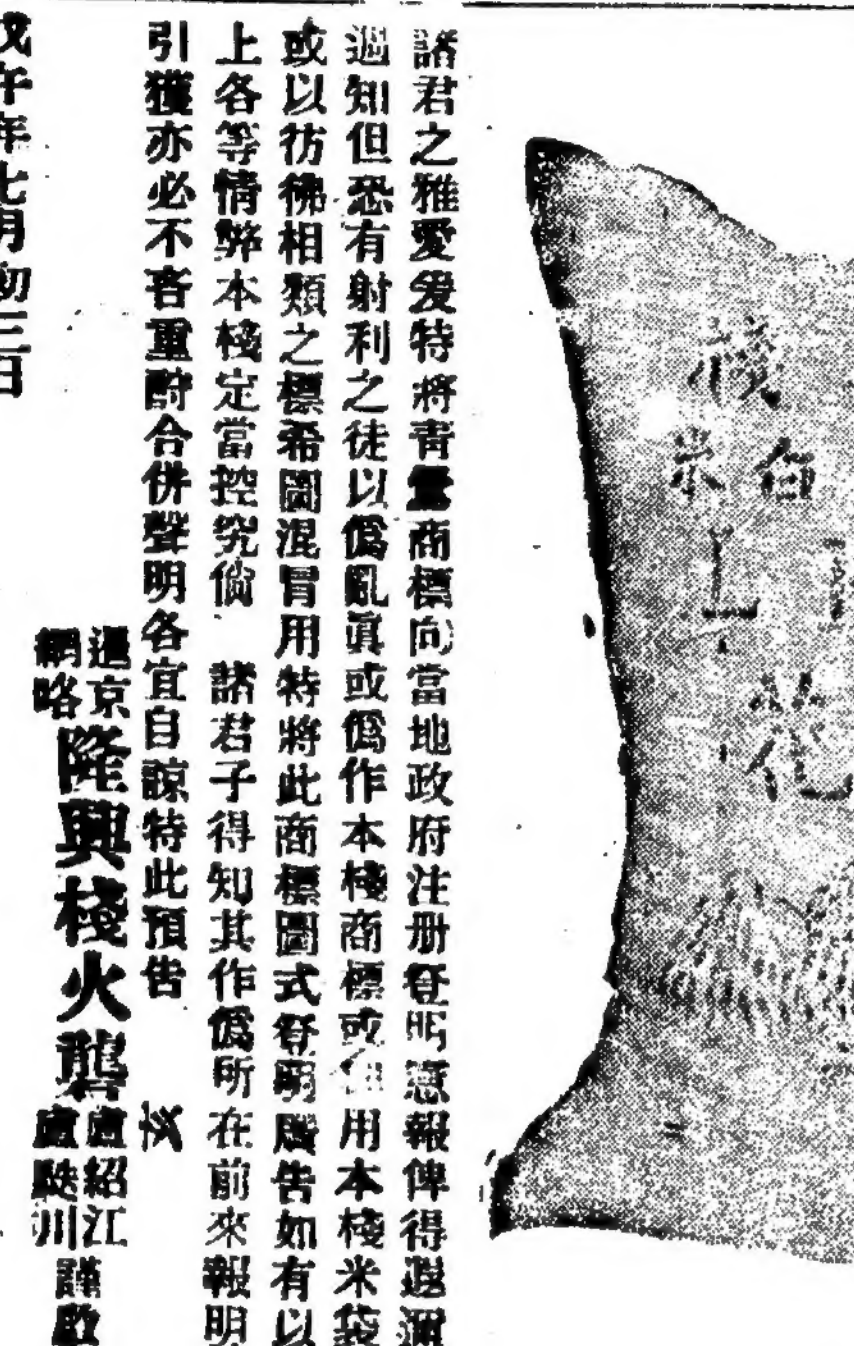 諸君之雅愛爰特將青龍商標向當地政府注册登明憲報俾得遐邇
週知但恐有射利之徒以僞亂眞或僞作本棧商標或用本棧米袋
或以彷彿相類之標希圖混冒用特將此商標圖式登明廣告如有以
上各等情弊本棧定當控究倘 諸君子得知其作僞所在前來報明
引獲亦必不吝重酧合併聲明各宜自諒特此預告
暹京
網咯
隆興棧火礱
盧紹江
盧𩢾川
謹啟
戊午年七月初三日
棧
米
上
花